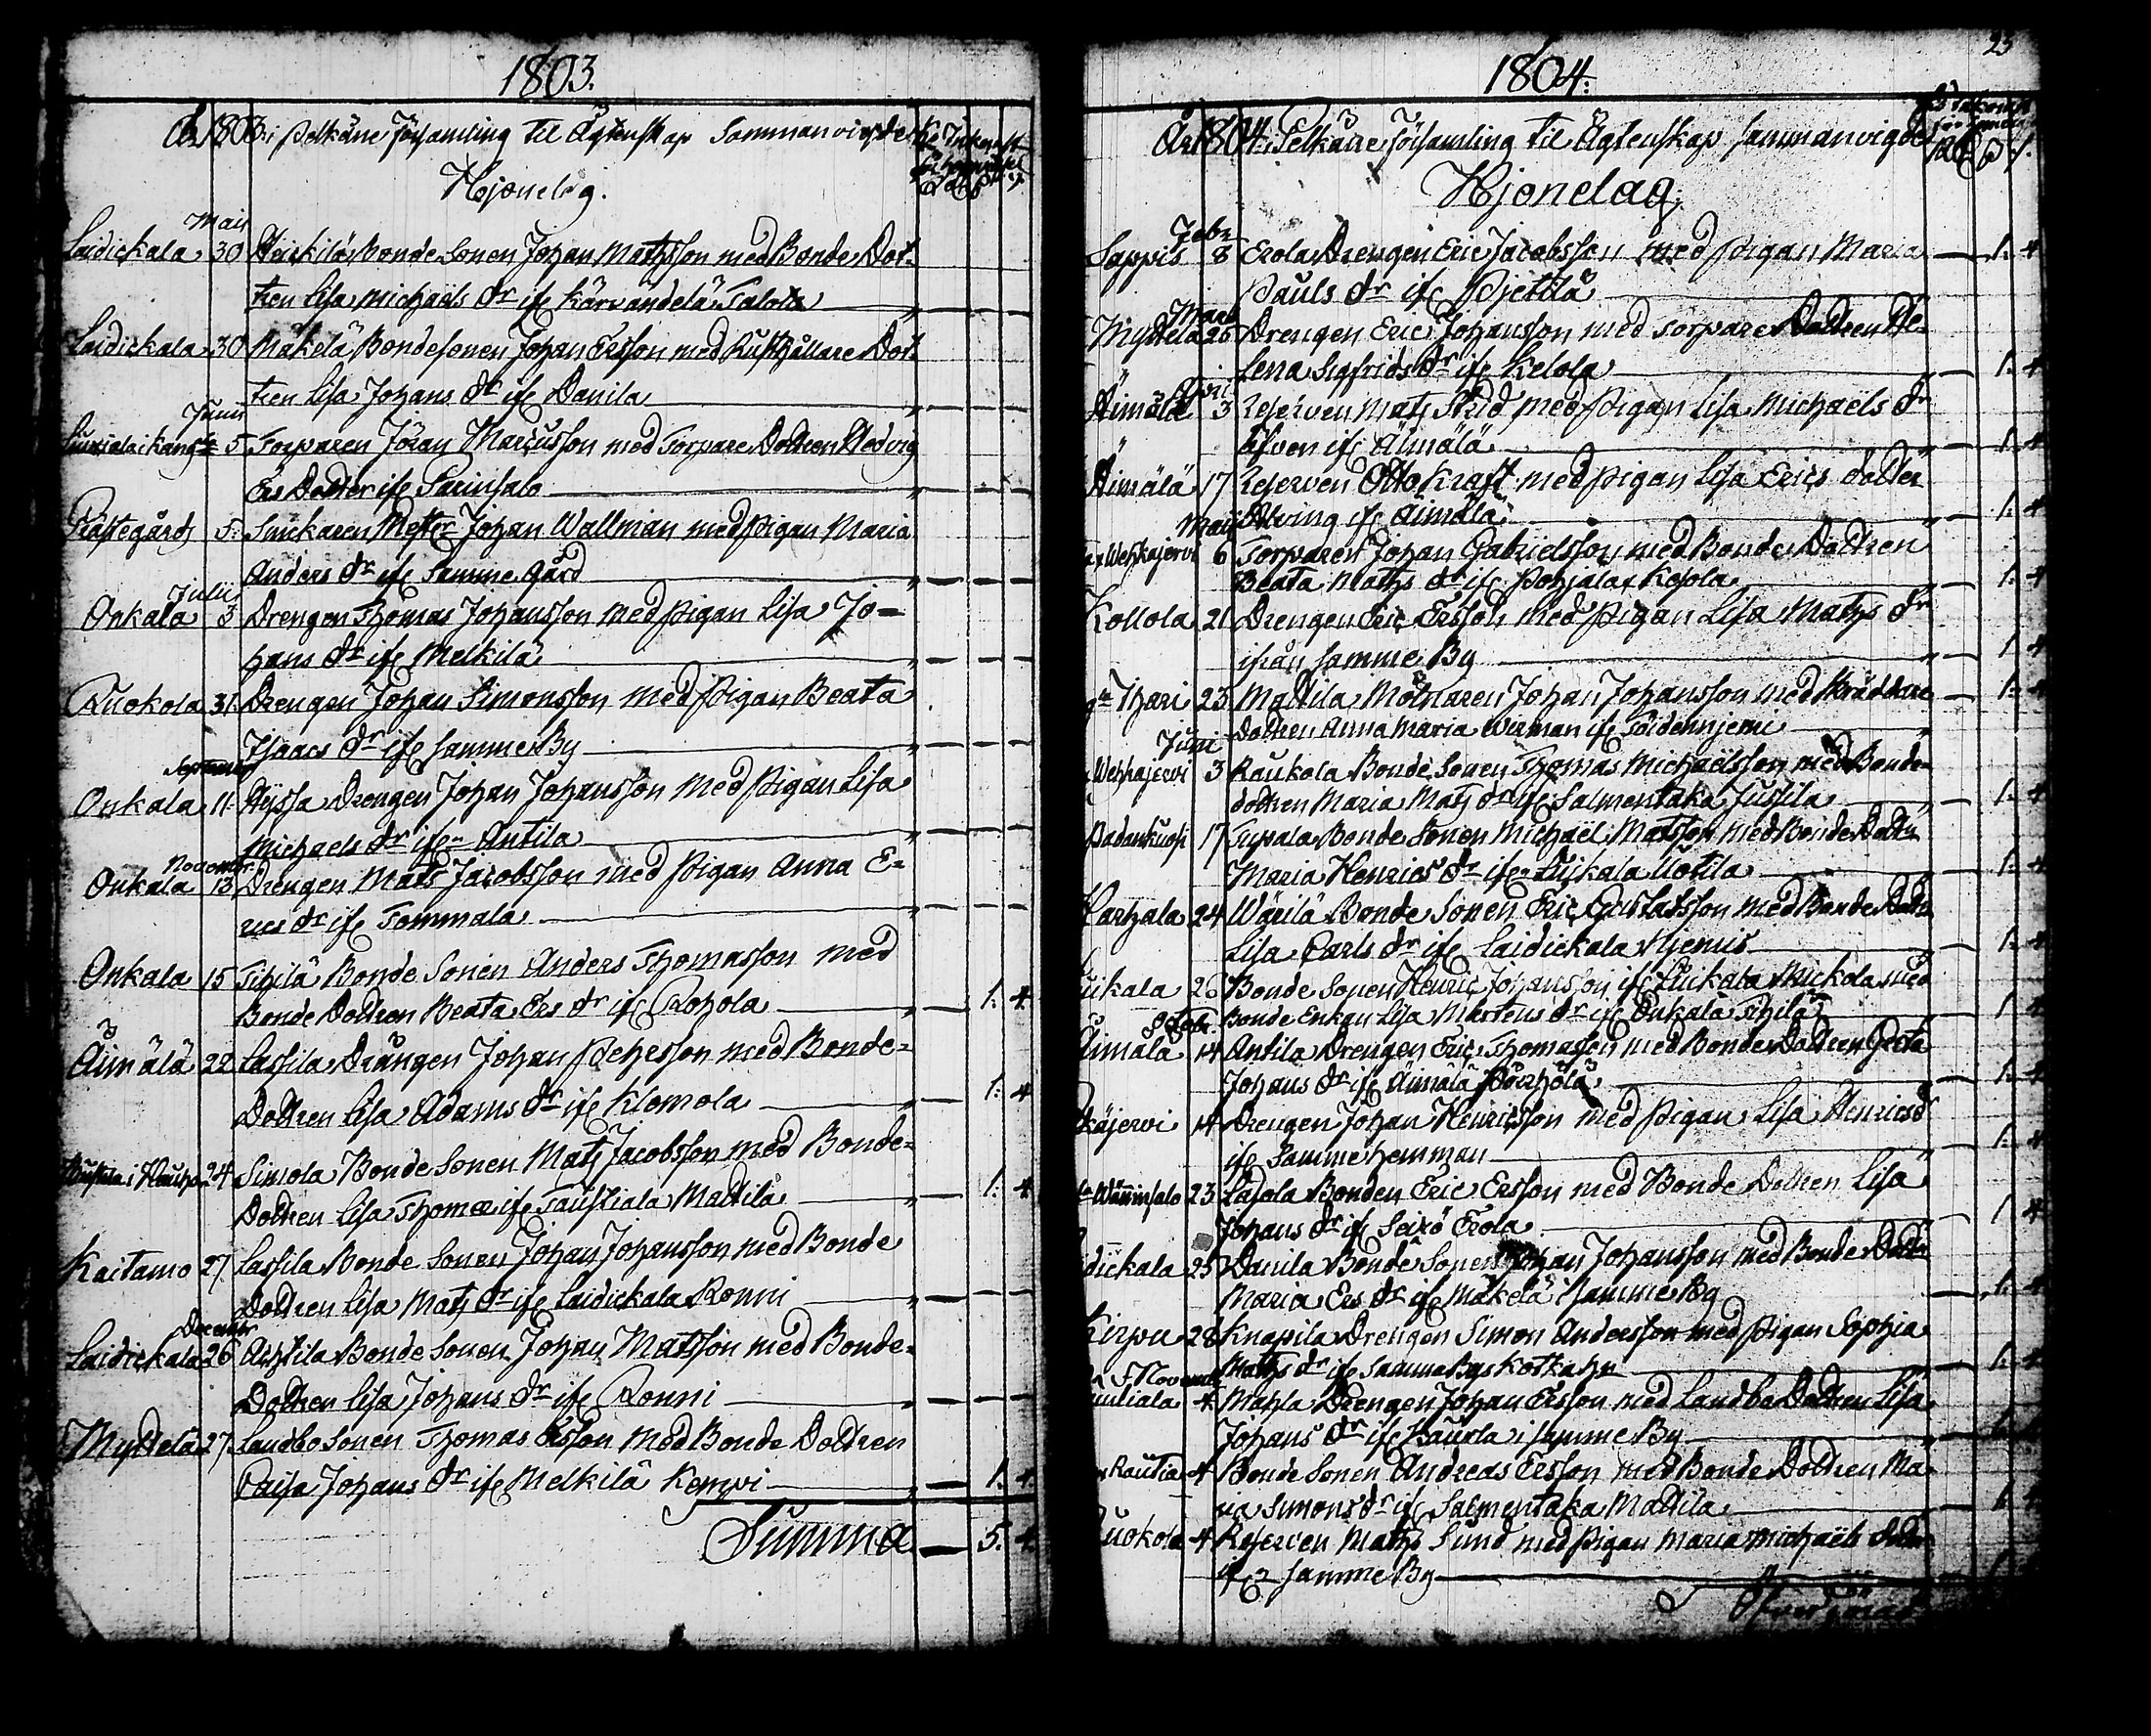 1803.
År 1803. i Pelkäne Församling til Ägtenskap Sammanvigde
Hjonelag.
Maji
Laidickala 30 Heickilä Bonde Sonen Johan Mathsson med Bonde Dot-
tren Lisa Michaëls dr if Kärvandelä Talola
Laidickala 30 Mäkelä Bondesonen Johan Ersson med Rusthållare Dot-
tren Lisa Johans dr if Danila
Junii
5 Torparen Jöran Marcusson med Torpare Dottren Hedvig
Ers Dotter if Sarinsalo
Prästegård 5. Snickaren Mester Johan Wallman med Pigan Maria
Anders dr if Samme gård
Julii
Onkala 3 Drengen Thomas Johansson med Pigan Lisa Jo-
hans dr if Melkilä
Ruokola 31. Drengen Johan Simonsson med Pigan Beata
Isaacs dr if samme By
Onkala 11. Hyssa Drengen Johan Johansson med Pigan Lisa
Michaels dr if Antila
Novembr
Onkala 13 Drengen Mats Jacobsson med Pigan Anna E-
rics dr if Tommala
Onkala 15 Tihilä Bonde Sonen Anders Thomasson med
Bonde Dottren Beata Ers dr if Rohola 1. 4
Äimälä 22 Lassila Drängen Johan Pehrsson med Bonde-
Dottren Lisa Adams dr if Klomola 1. 4
24 Simola Bonde Sonen Mats Jacobsson med Bonde-
Dottren Lisa Thomæ if Taustiala Mattila 1. 4
Kaitamo 27. Lassila Bonde Sonen Johan Johansson med Bonde
Dottren Lisa Mats dr if Laidickala Ronni
Decembr
Laidickala 26 Achtila Bonde Sonen Johan Matsson med Bonde-
Dottren Lisa Johans dr if Ronni
Myttelä 27. Landbo Sonen Thomas Ersson med Bonde Dottren
Caisa Johans dr if Melkilä Kerppi 1. 4
Summa 5. 4
23
1804.
År 1804. i Pelkäne Församling til Ägtenskap sammanvigde
Hjonelag.
Febr
Sappis 8 Erola Drengen Eric Jacobsson med Pigan Maria 1. 4
Pauls dr if Pjetilä
Mart
Myttelä 25 Drengen Eric Johansson med Torpare Dottren He-
lena Sigfrids dr if Kelola 1. 4
April
Äimälä 3 Reserven Mats Strid med Pigan Lisa Michaëls dr
Elfven if Äimälä 1. 4
Äimälä 17 Reserven Otto Kraft med Pigan Lisa Erics dotter
if Äimälä 1. 4
Maji
Wehkajervi 6 Torparen Johan Gabrielsson med Bonde Dottren
Beata Maths dr if Pohjala Kesola 1. 4
Kollola 21 Drengen Eric Ersson med Pigan Lisa Maths dr
ifrån samme By 1 4
Ihari 23 Mattila Mölnaren Johan Johansson med Skräddare 1. 4
Dottren Anna Maria Wirman if
Juni
Wehkajervi 3 Raukola Bonde Sonen Thomas Michaëlsson med Bonde-
dottren Maria Mats dr if Salmentaka Jussila 1. 4
Padankuoh 17 Bonde Sonen Michaël Matsson med Bonde Dottren
Maria Henrics dr if Luikala Uotila 1. 4
Karhala 24 Wärilä Bonde Sonen Eric Gustafsson med Bonde Dottr
Lisa Carls dr if Laidickala Njemis 1. 4
uikala 26 Bonde Sonen Henric Johansson if Luikala Mickola med
Bonde Enkan Lisa Mårtens dr if Onkala Tihilä 1 4
Äimälä 14 Antila Drengen Eric Thomasson med Bonde Dottren Greta
Johans dr if Äimälä Pörhölä 1. 4
käjervi 14 Drengen Johan Henricsson med Pigan Lisa Henricsdr
if samme hemman 1. 4
23 Lasola Bonden Eric Ersson med Bonde Dottren Lisa
Johans dr if Seixö Erola 1 4
dickala 25 Danila Bonde Sonen Johan Johansson med Bonde Dottr
Maria Ers dr if Mäkelä i samme By 1. 4
Kirpu 28 Knapila Drengen Simon Andersson med Pigan Sophia
Maths dr if samme Bys 1. 4
Novembr
4 Mahla Drengen Johan Ersson med Landbo Dottren Lisa
Johans dr if Kaurla i samme By
Rautia 4 Bonde Sonen Andreas Ersson med Bonde Dottren Ma-
ria Simons dr if Salmentaka Mattila 1. 4
Ruokola 4 Reserven Maths Sund med Pigan Maria Michaëls dotter
if samme By 1